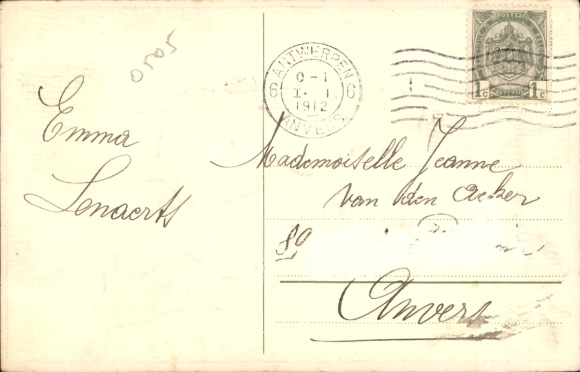 Emma
Lenaerts
ANTWERPEN
6 0-1 6
I. 1
1912
ANVERS
1c 1c
Mademoiselle Jeanne
van den Acker
80
Anvers